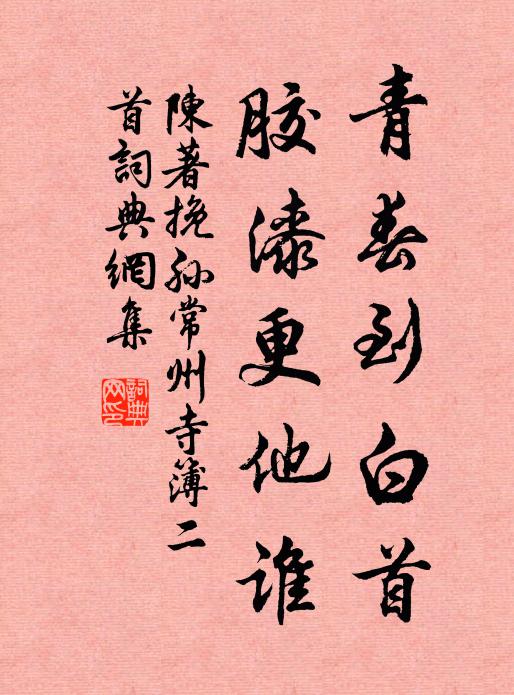 青春到白首
膠漆更他誰
陳著挽孫常州寺簿二
首詞典網集
詞典网印